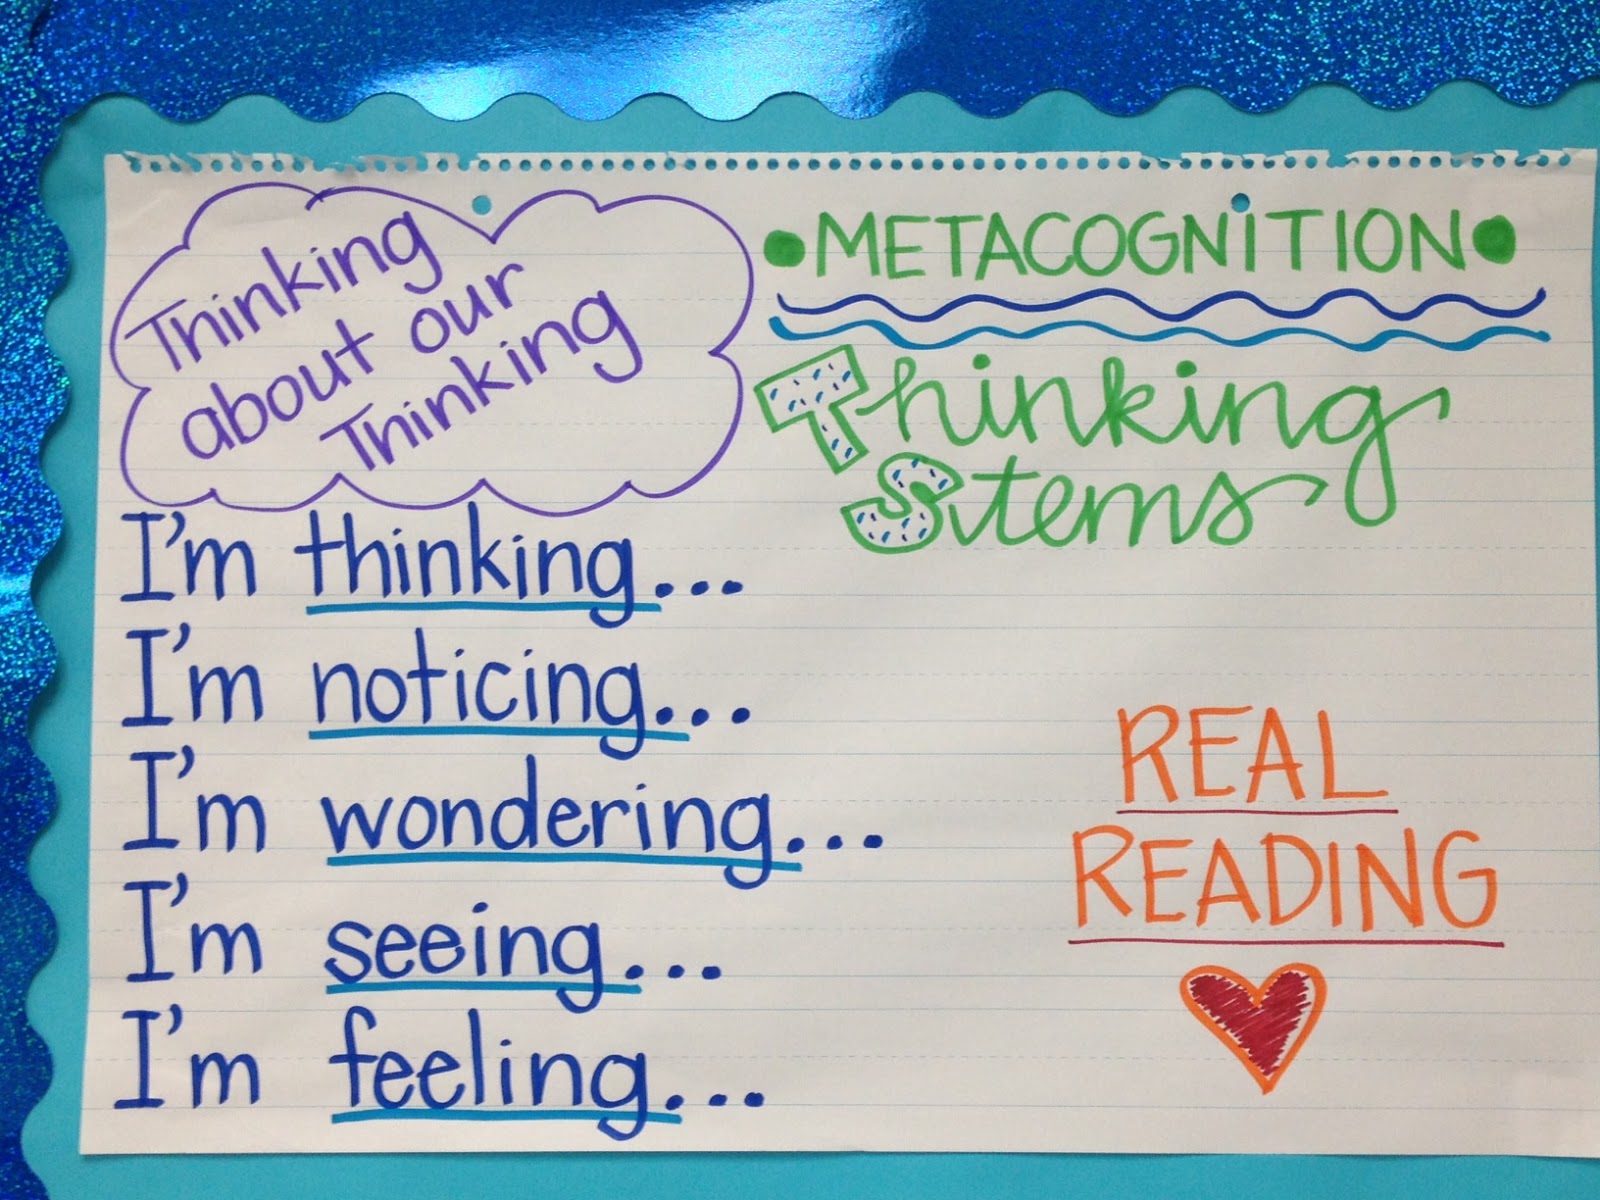 Thinking
about our
Thinking
METACOGNITION
Thinking
Stems
I'm thinking...
I'm noticing...
I'm wondering...
I'm seeing...
I'm feeling...
REAL
READING